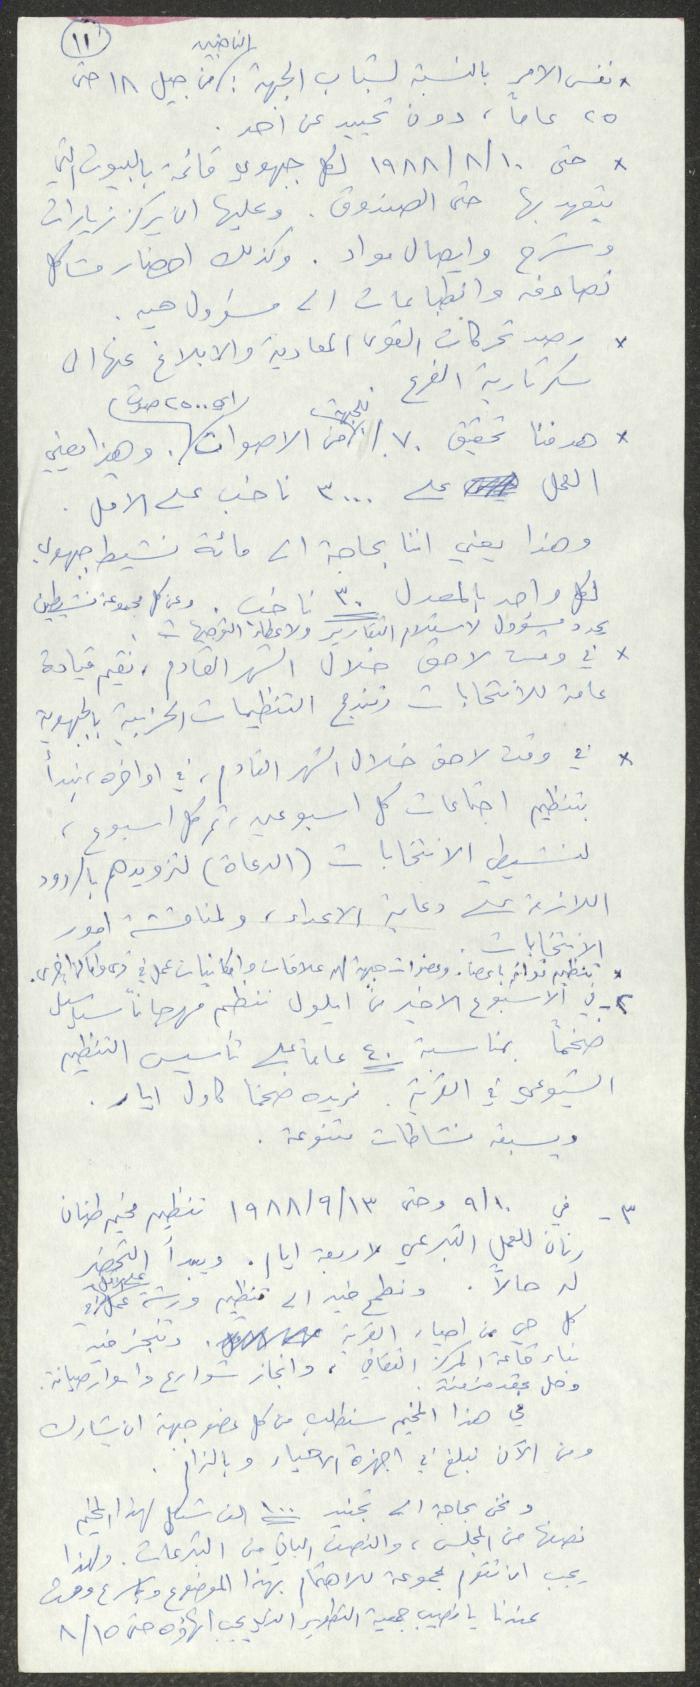 ١١
الناخبين
* نفس الامر بالنسبة لشباب الجبهة / من جيل ١٨ حتى
٢٥ عاماً، دون تحييد عن احد.
* حتى ١٩٨٨/٨/١٠ لكل جبهوي قائمة بالبيوت التي
يتعهد بها حتى الصندوق. وعليها ان يركز زيارات
وشرح وايصال مواد. وكذلك احضار مشاكل
تصادفه وانطباعات الى مسؤول حيه.
* رصد تحركات القوى المعادية والابلاغ عنها الى
سكرتارية الفرع
للجبهة (اي ٢٥٠٠ صوت)
* هدفنا تحقيق ٧٠٪ من الاصوات. وهذا يعني
العمل على ٣٠٠٠ ناخب على الاقل.
وهذا يعني اننا بحاجة الى مائة نشيط جبهوي
لكل واحد بالمعدل ٣٠ ناخب. وعن كل مجموعة نشيطين
يحدد مسؤول لاستلام التقارير ولاعطاء التوجيهات.
* في وقت لاحق خلال الشهر القادم، نقيم قيادة
عامة للانتخابات وتندمج التنظيمات الحزبية بالجبهوية
* في وقت لاحق خلال الشهر القادم، في اواخره، نبدأ
بتنظيم اجتماعات كل اسبوعين، ثم كل اسبوع،
لنشيطي الانتخابات (الدعاة) لتزويدهم بالردود
اللازمة على دعاية الاعداء، ولمناقشة امور
الانتخابات.
* تنظيم قوائم باعضاء وعضوات جبهة لهم علاقات وامكانيات عمل في قرى واماكن اخرى.
٢- في الاسبوع الاخير من ايلول ننظم مهرجاناً
ضخماً بمناسبة ٤٠ عاماً على تأسيس التنظيم
الشيوعي في القرية. نريده ضخما كأول ايار.
ويسبقه نشاطات متنوعة.
٣- في ٩/١٠ وحتى ١٩٨٨/٩/١٣ تنظيم مخيم طنان
رنان للعمل التبرعي لاربعة ايام. ويبدأ التحضير
له حالاً. ونطمح فيه الى تنظيم ورشة عمل
كل حي من احياء القرية. وننجز فيه
بناء قاعة المركز الثقافي، وانجاز شوارع واسوار صيانة.
وحل عقد مزمنة.
في هذا المخيم سنطلب من كل عضو جبهة ان يشارك
ومن الآن نبلغ في اجهزة الاحياء وبالذات.
ونحن بحاجة الى تجنيد ١٠٠ الف شيكل لهذا المخيم
نصفها من المجلس، والنصف الباقي من التبرعات. ولهذا
يجب ان تقوم مجموعة للاهتمام بهذا الموضوع وباسرع وقت
عندنا يانصيب جمعية التطوير الذي يجب انهاؤه حتى ٨/١٥